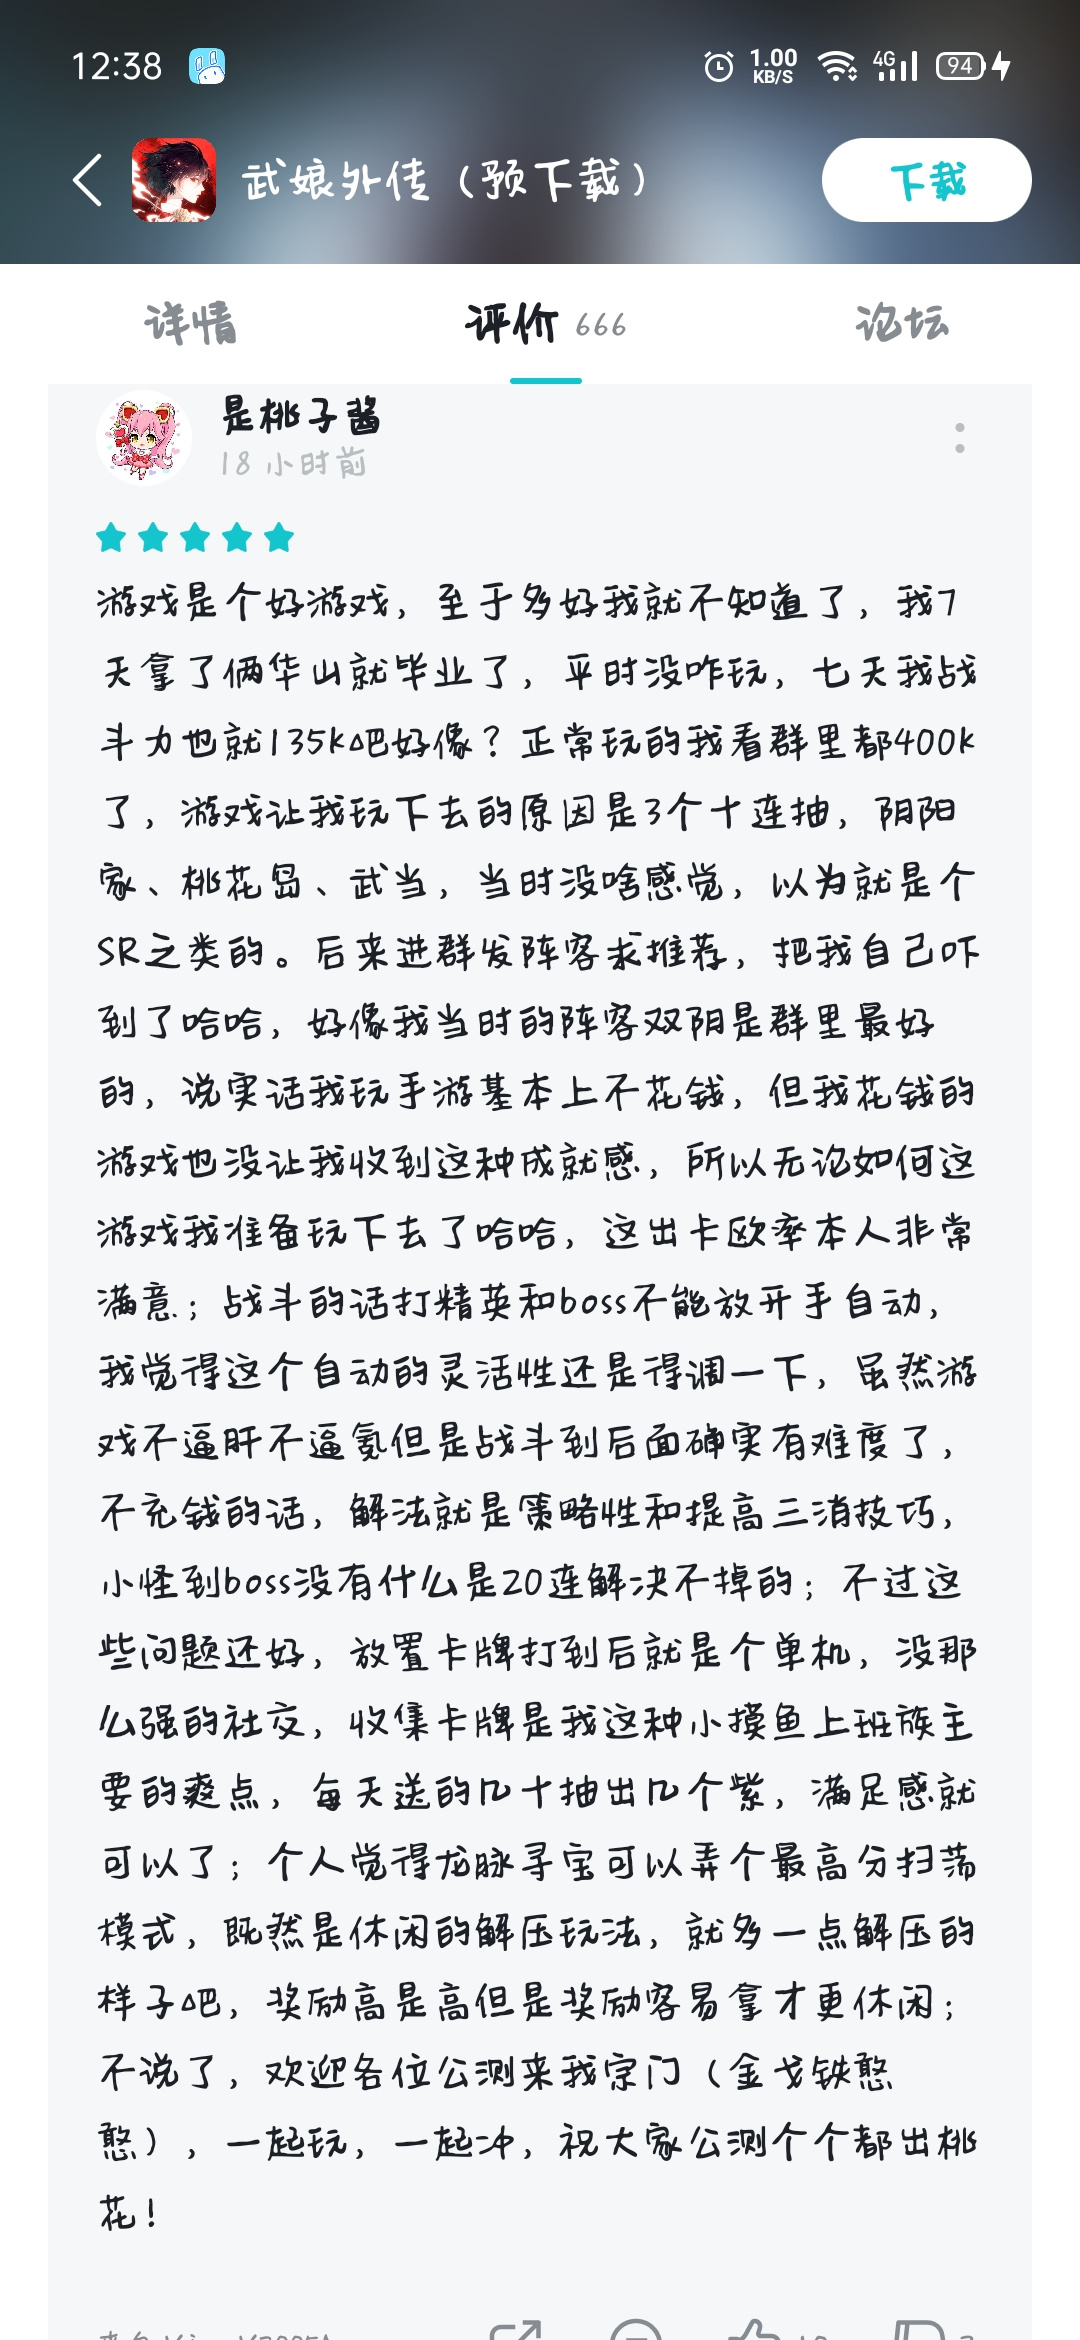 12:38
1.00
KB/S
4G
94
武娘外传（预下载）
下载
详情
评价 666
论坛
是桃子酱
18 小时前
游戏是个好游戏，至于多好我就不知道了，我7
天拿了俩华山就毕业了，平时没咋玩，七天我战
斗力也就135k吧好像？正常玩的我看群里都400k
了，游戏让我玩下去的原因是3个十连抽，阴阳
家、桃花岛、武当，当时没啥感觉，以为就是个
SR之类的。后来进群发阵容求推荐，把我自己吓
到了哈哈，好像我当时的阵容双阴是群里最好
的，说实话我玩手游基本上不花钱，但我花钱的
游戏也没让我收到这种成就感，所以无论如何这
游戏我准备玩下去了哈哈，这出卡欧率本人非常
满意；战斗的话打精英和boss不能放开手自动，
我觉得这个自动的灵活性还是得调一下，虽然游
戏不逼肝不逼氪但是战斗到后面确实有难度了，
不充钱的话，解法就是策略性和提高三消技巧，
小怪到boss没有什么是20连解决不掉的；不过这
些问题还好，放置卡牌打到后就是个单机，没那
么强的社交，收集卡牌是我这种小摸鱼上班族主
要的爽点，每天送的几十抽出几个紫，满足感就
可以了；个人觉得龙脉寻宝可以弄个最高分扫荡
模式，既然是休闲的解压玩法，就多一点解压的
样子吧，奖励高是高但是奖励容易拿才更休闲；
不说了，欢迎各位公测来我宗门（金戈铁憨
憨），一起玩，一起冲，祝大家公测个个都出桃
花！